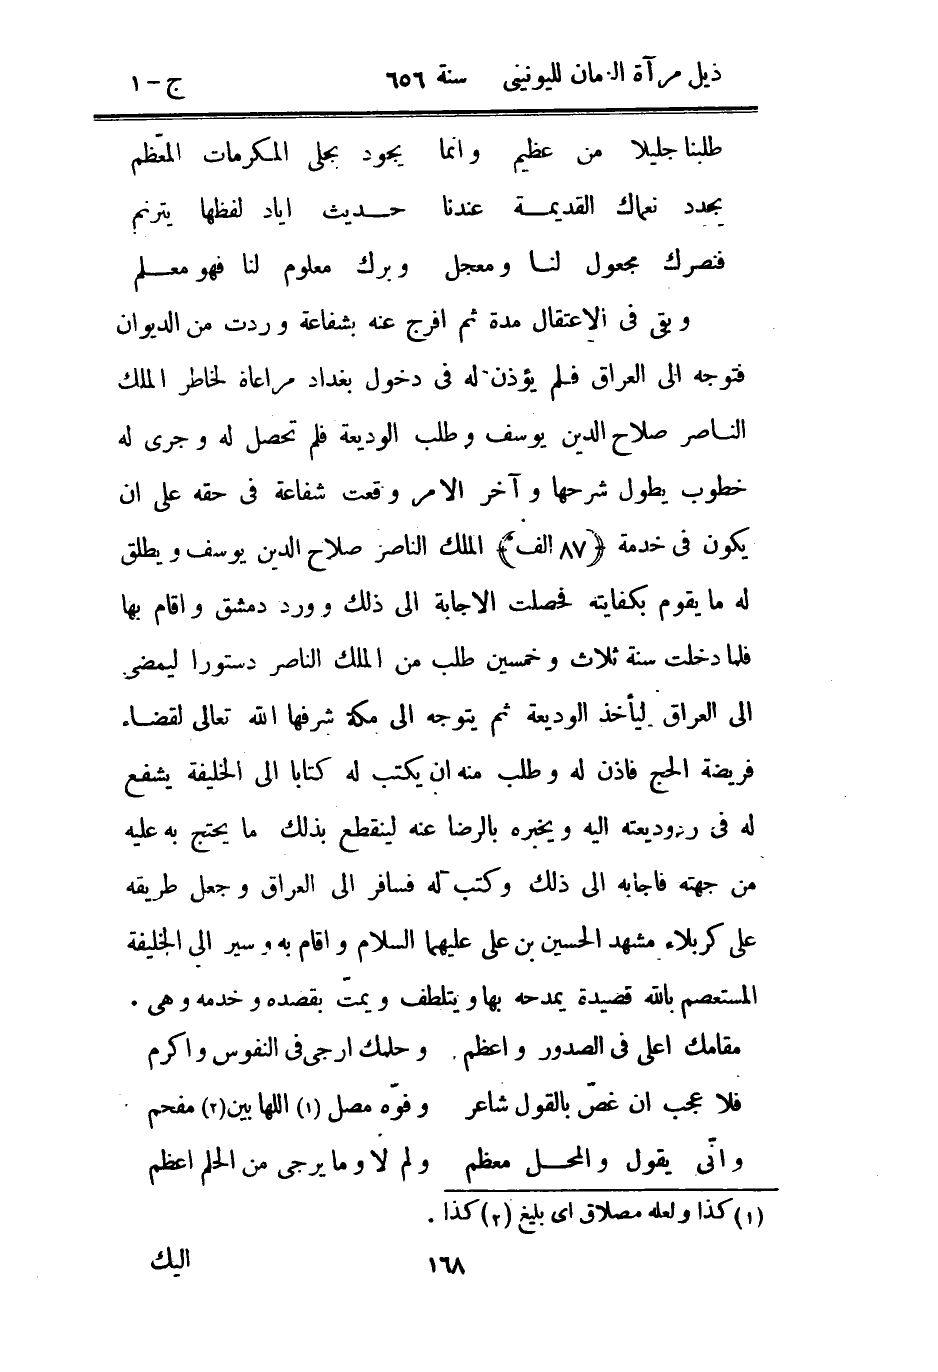 ذيل مرآة الزمان لليونينى سنة ٦٥٦ ج - ١
طلبنا جليلا من عظيم وانما يجود بجلى المكرمات المعظّم
يجدد نعماك القديمـة عندنا حـديث اياد لفظها يترنم
فنصرك مجعول لنـا ومعجل وبرك معلوم لنا فهو معـلم
وبقى فى الاعتقال مدة ثم افرج عنه بشفاعة وردت من الديوان
فتوجه الى العراق فـلم يؤذن له فى دخول بغداد مراعاة لخاطر الملك
النـاصر صلاح الدين يوسف وطلب الوديعة فلم تحصل له وجرى له
خطوب يطول شرحها وآخر الامر وقعت شفاعة فى حقه على ان
يكون فى خدمة ﴿٨٧ الف﴾ الملك الناصر صلاح الدين يوسف ويطلق
له ما يقوم بكفايته فحصلت الاجابة الى ذلك وورد دمشق واقام بها
فلما دخلت سنة ثلاث وخمسين طلب من الملك الناصر دستورا ليمضى
الى العراق ليأخذ الوديعة ثم يتوجه الى مكة شرفها الله تعالى لقضـاء
فريضة الحج فاذن له وطلب منه ان يكتب له كتابا الى الخليفة يشفع
له فى رد وديعته اليه ويخبره بالرضا عنه لينقطع بذلك ما يحتج به عليه
من جهته فاجابه الى ذلك وكتب له فسافر الى العراق وجعل طريقه
على كربلاء مشهد الحسين بن على عليهما السلام واقام به وسير الى الخليفة
المستعصم بالله قصيدة يمدحه بها ويتلطف ويمتّ بقصده وخدمه وهى .
مقامك اعلى فى الصدور واعظم وحلمك ارجى فى النفوس واكرم
فلا عجب ان غصّ بالقول شاعر وفوّه مصل (١) اللها بين (٢) مفحم
وانّى يقول والمحـل معظم ولم لا وما يرجى من الحلم اعظم
(١) كذا ولعله مصلاق اى بليغ (٢) كذا .
١٦٨ اليك